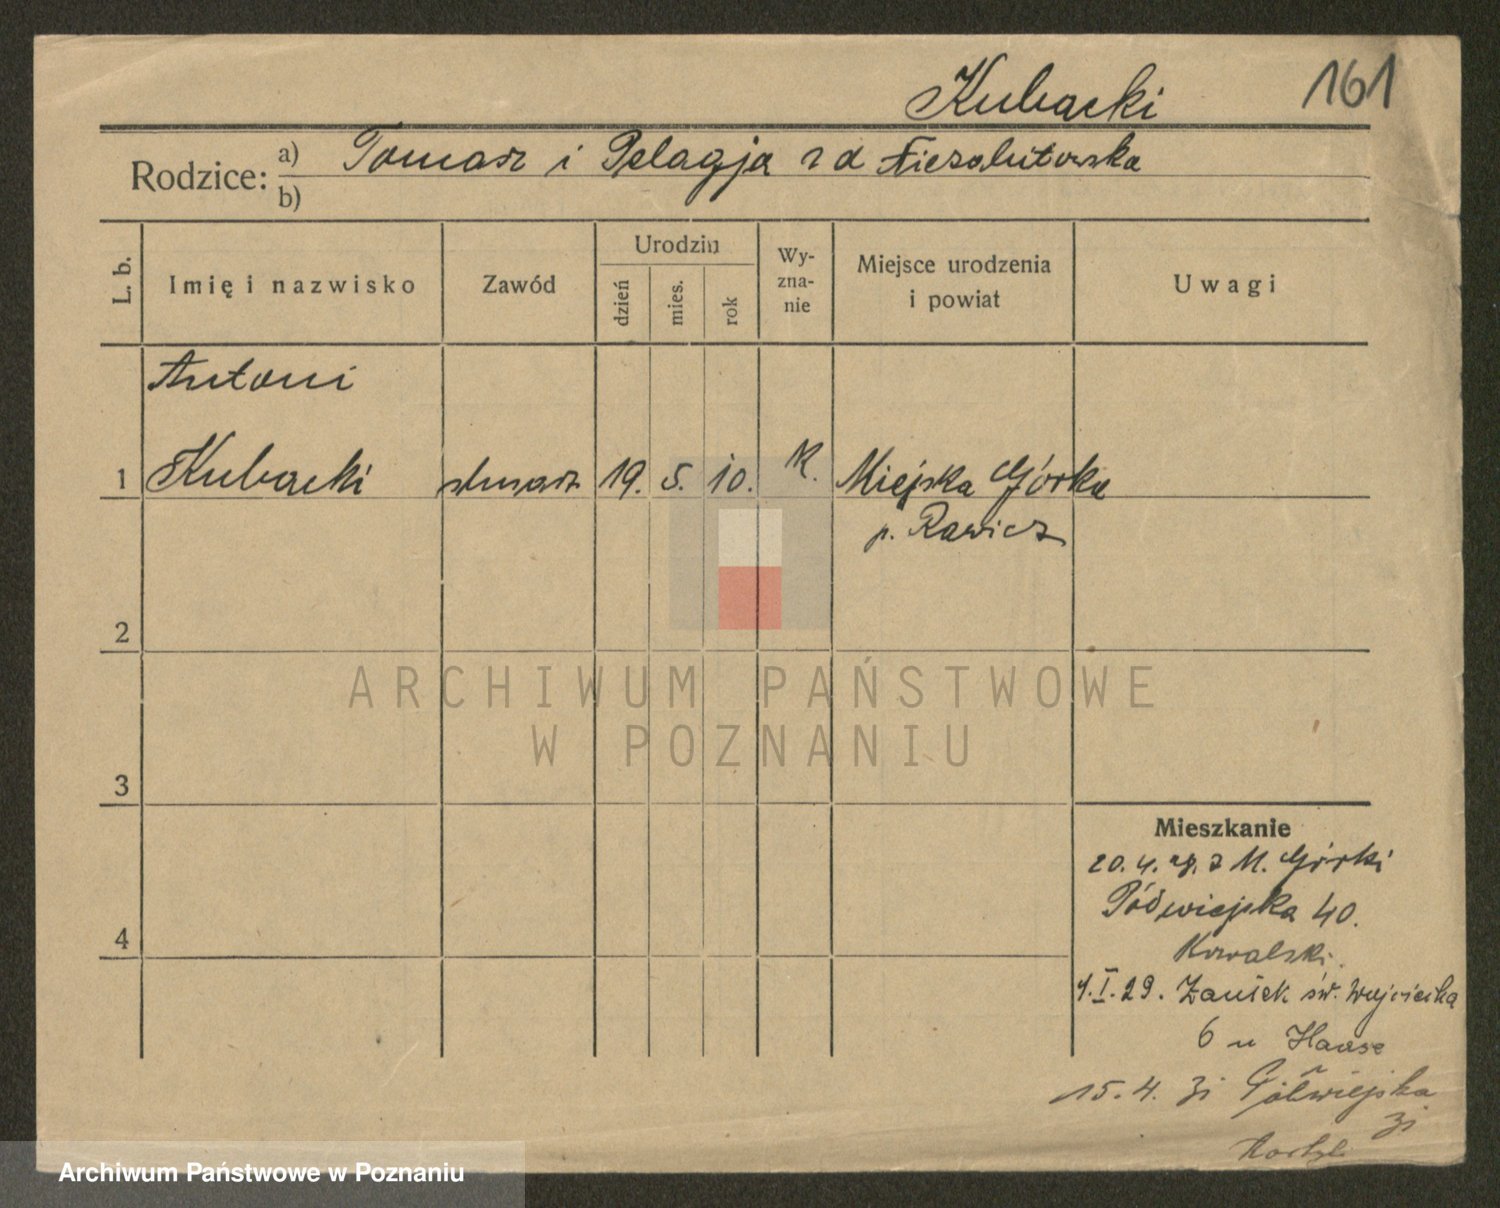 Kubacki
161
Rodzice: a) Tomasz i Pelagja z d
b)
L. b.
Imię i nazwisko
Zawód
Urodzin
dzień
mies.
rok
Wy-
zna-
nie
Miejsce urodzenia
i powiat
Uwagi
Antoni
1 Kubacki ślusarz 19. 5. 10. K. Miejska Górka
p. Rawicz
2
3
4
Mieszkanie
20. 4. 28. z M. Górki
Półwiejska 40.
Kowalski.
4. I. 29. Zaułek św. Wojciecha
6 u Haase
15. 4. 31 Półwiejska
31
ARCHIWUM PAŃSTWOWE
W POZNANIU
Archiwum Państwowe w Poznaniu